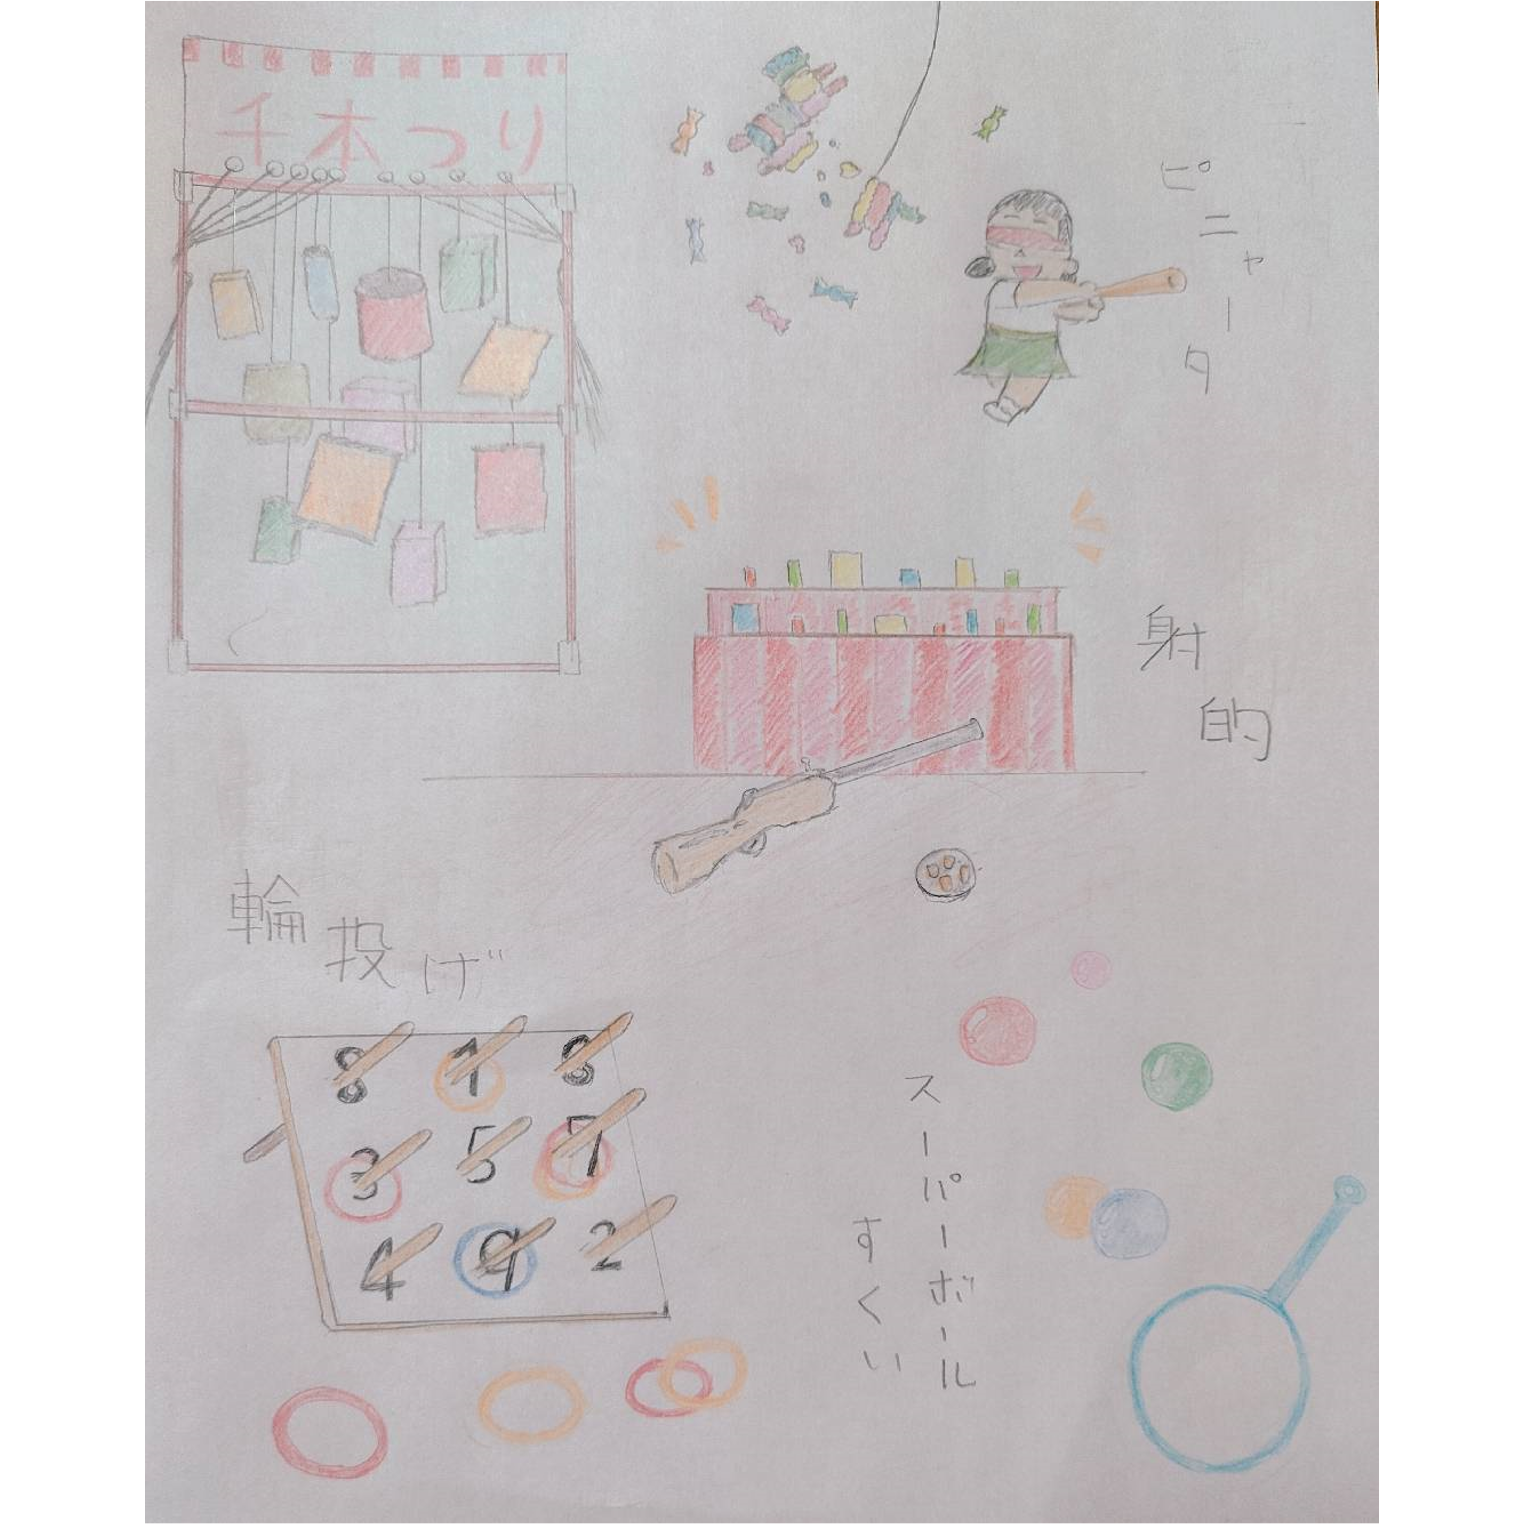 千本つり
ピニャータ
射的
輪投げ
8 1 8
3 5 7
4 9 2
スーパーボール
すくい